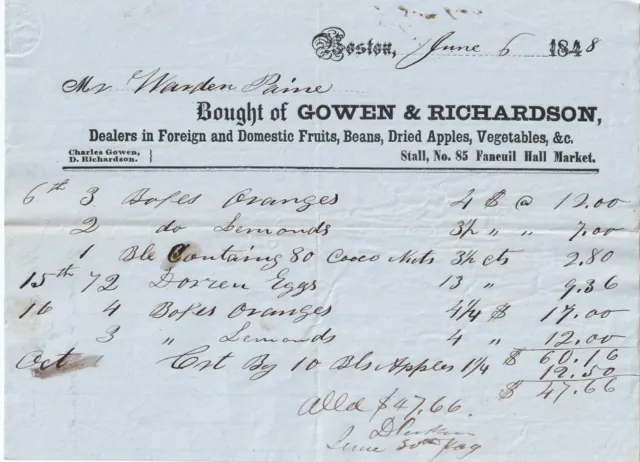 Boston, June 6 1848
Mr Warden Paine
Bought of GOWEN & RICHARDSON,
Dealers in Foreign and Domestic Fruits, Beans, Dried Apples, Vegetables, &c.
Charles Gowen,
D. Richardson. }
Stall, No. 85 Faneuil Hall Market.
6th 3 Boxes Oranges 4 $ @ 12.00
2 do Lemonds 3½ " " 7.00
1 Ble Containg 80 Coco Nuts 3½ cts 2.80
15th 72 Dozen Eggs 13 " 9.36
16 4 Boxes Oranges 4¼ $ 17.00
3 " Lemonds 4 " 12.00
$ 60.16
Oct Crt By 10 Bls Apples 1¼ 12.50
$ 47.66
$47.66.
June 30th